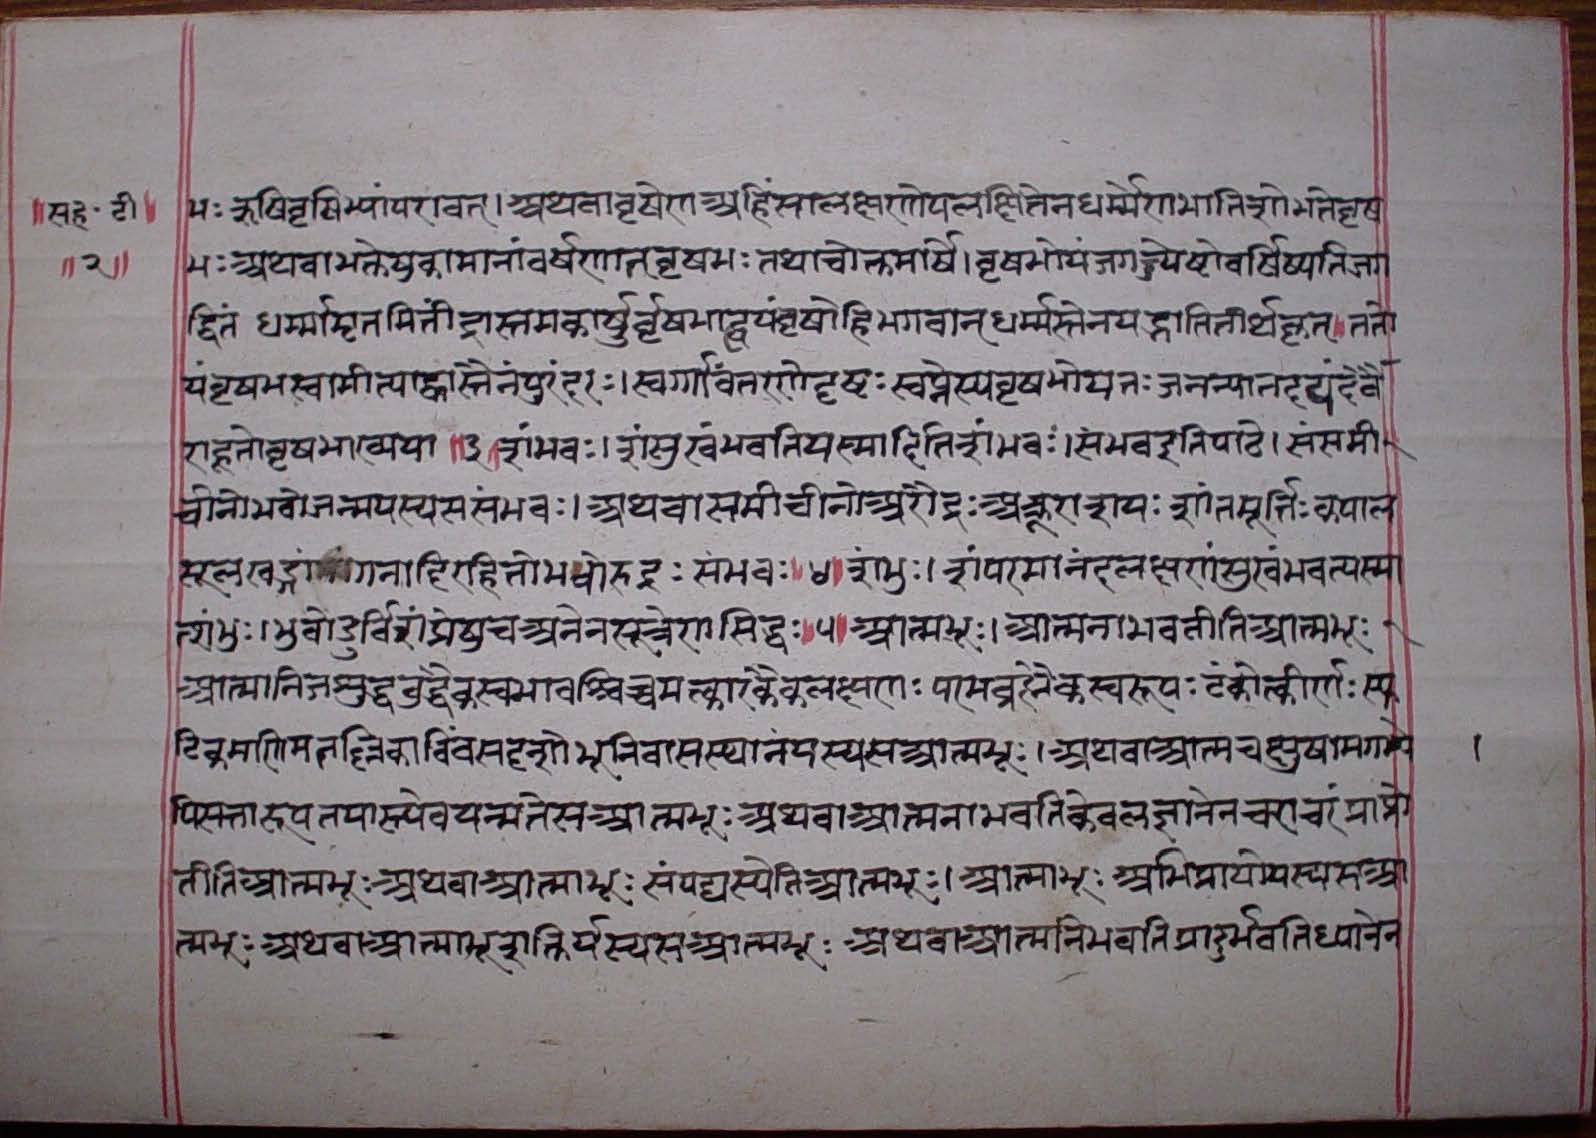 ॥सह॰टी॥
॥२॥
भः ऋषिवृषिभ्यांपरावत्।अथवावृषेणअहिंसालक्षणोपलक्षितेनधर्म्मेणभातिशोभतेवृष
भःअथवाभक्तेषुकामानांवर्षणात्वृषभः तथाचोक्तमार्षे।वृषभोयंजगज्ज्येष्टोवर्षिष्यतिजग
द्धितं धर्म्मामृतमितींद्रास्तमकार्षुर्वृषभाह्वयंवृषोहिभगवान्धर्म्मस्तेनयद्भातितीर्थकृत्॥ततो
यंवृषभस्वामीत्याह्वास्तैनंपुरंदरः।स्वर्ग्गावतरणेदृष्टःस्वप्नेस्यवृषभोयतःजनन्यातदयंदेवै
राहूतोवृषभाख्यया॥३॥शंभवः।शंसुखंभवतियस्मादितिशंभवः।संभवइतिपाठे।संसमी
चीनोभवोजन्मयस्यससंभवः।अथवासमीचीनोअरौद्रःअक्रूराशयः शांतमूर्त्तिःकपाल
सूलखङ्गांगनादिरहितोभवोरुद्रः संभवः॥४॥शंभुः।शंपरमानंदलक्षणंसुखंभवत्यस्मा
त्शंभुः।भुवोडुर्विशंप्रेषुचअनेनसूत्रेणसिद्धः॥५॥आत्मभूः।आत्मनाभवतीतिआत्मभूः
आत्मानिजशुद्धबुद्धैकस्वभावश्चिच्चमत्कारैकैकलक्षणः परमब्रह्मैकस्वरूपः टंकोत्कीर्णः स्फ
टिकमणिमतल्लिकाबिंबसदृशोभूनिवासस्थानंयस्यसआत्मभूः।अथवाआत्मचक्षुषामगम्ये
पिसत्तारूपतयास्त्येवयन्मतेसआत्मभूःअथवाआत्मनाभवतिकेवलज्ञानेनचराचरंप्राप्नो
तीतिआत्मभूःअथवाआत्माभूः संपद्यस्येतिआत्मभूः।आत्माभूः अभिप्रायोयस्यसआ
त्मभूःअथवाआत्माभूशक्तिर्यस्यसआत्मभूः अथवाआत्मनिभवतिप्रादुर्भवतिध्यानेन